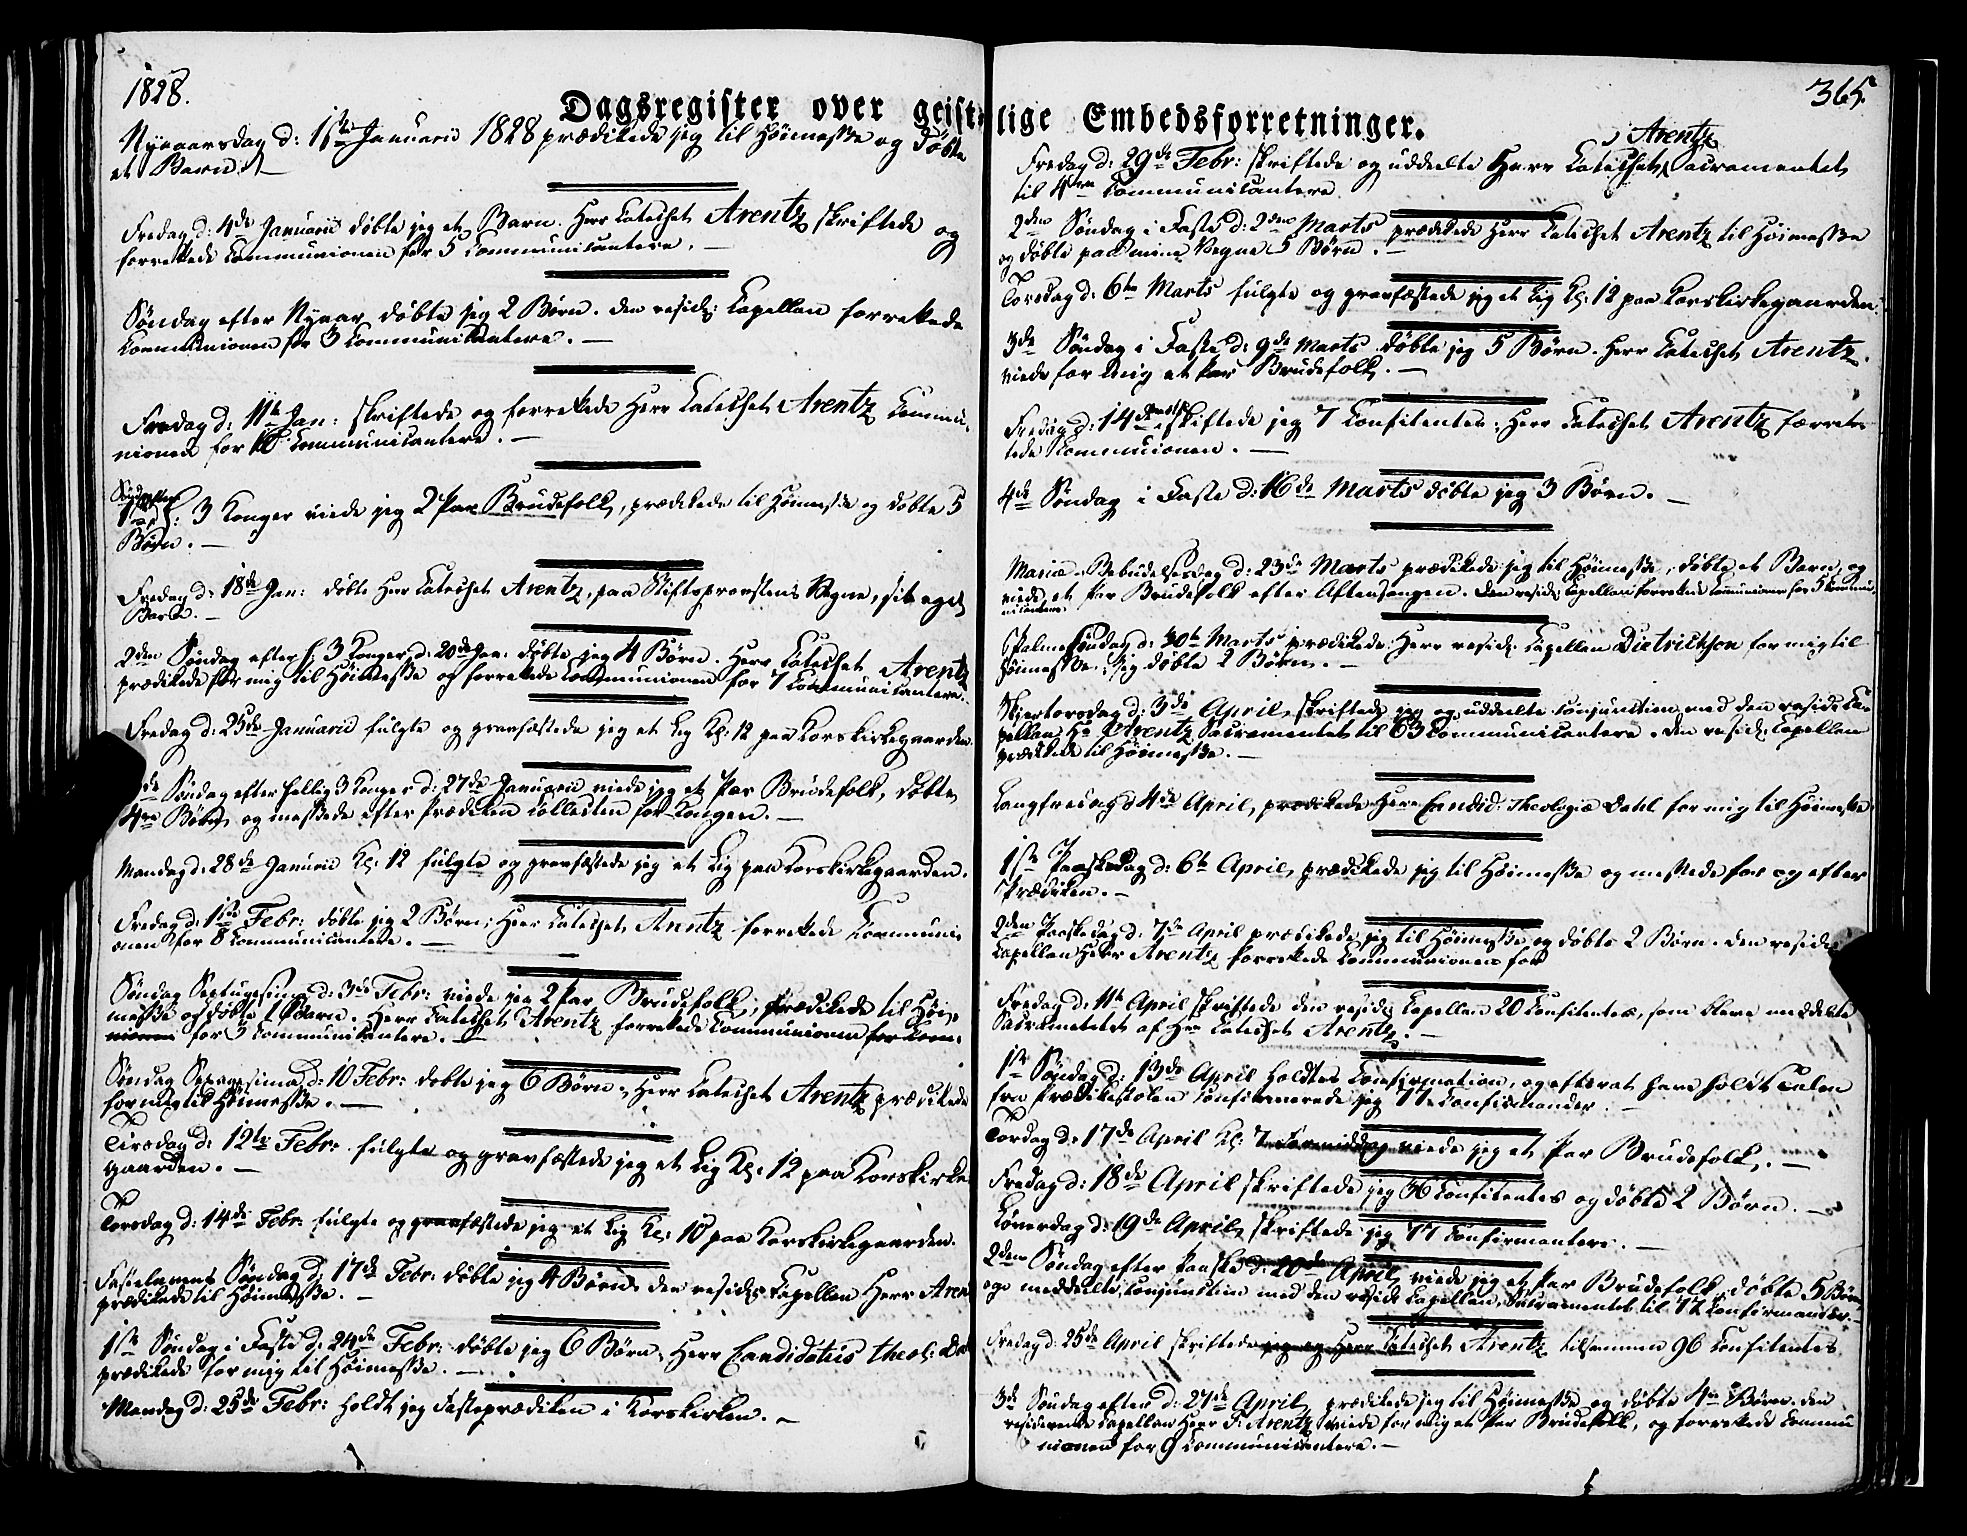 1828.
365.
Dagsregister over geistlige Embedsforretninger.
Nyaarsdag d: 1ste Januarii 1828 prædikede jeg til Høimesse og døbte
et Barn.
Fredag d: 4de Januarii døbte jeg et Barn. Herr Catechet Arentz skriftede og
forrettede Communionen for 5 Communicantere.
Søndag efter Nyaar døbte jeg 2 Børn. den resid: Capellan forrettede
Communionen for 3 Communicantere.
Fredag d: 11te Jan: skriftede og forrettede Herr Catechet Arentz Commu-
nionen for Communicantere.
Søndag efter
1ste 3 Konger viede jeg 2 Par Brudefolk, prædikede til Høimesse og døbte 5
Børn.
Fredag d: 18de Jan: døbte Herr Catechet Arentz, paa Stiftsprovstens Vegne, sit eget
Barn.
2den Søndag efter h: 3 Konger d: 20de Jan: døbte jeg 4 Børn. Herr Catechet Arentz
prædikede for mig til Høimesse og forrettede Communionen for 7 Communicantere.
Fredag d: 25de Januarii fulgte og gravfæstede jeg et Lig Kl: 12 paa Korskirkegaarden.
de Søndag efter hellig 3 Konger d: 27de Januarii viede jeg et Par Brudefolk, døbte
4re Børn og messede efter Prædiken Collecten for Kongen.
Mandag d: 28de Januarii Kl: 12 fulgte og gravfæstede jeg et Lig paa Korskirkegaarden.
Fredag d: 1ste Febr: døbte jeg 2 Børn, Herr Catechet Arentz forrettede Communi-
onen for 8 Communicantere.
Søndag Septuagesima d: 3de Febr: viede jeg 2 Par Brudefolk, prædikede til Høi-
messe og døbte 1 Barn. Herr Catechet Arentz forrettede Communionen for Com-
for 3 Communicantere.
Søndag Sexagesima d: 10 Febr: døbte jeg 6 Børn, Herr Catechet Arentz prædikede
for mig til Høimesse.
Tirsdag d: 12te Febr: fulgte og gravfæstede jeg et Lig Kl: 12 paa Korskirke
gaarden.
Torsdag d: 14de Febr: fulgte og gravfæstede jeg et Lig Kl: 10 paa Korskirkegaarden.
Fastelavens Søndag d: 17de Febr: døbte jeg 4 Børn. den resid: Capellan Herr Aren
prædikede til Høimesse.
1ste Søndag i Faste d: 24de Febr: døbte jeg 6 Børn, Herr Candidatus theol: Da
prædikede for mig til Høimesse.
Mandag d: 25de Febr: holdt jeg Fasteprædiken i Korskirken.
Arentz
Fredag d: 29de Febr: skriftede og uddeelte Herr Catechet Sacramentet
til 4re Communicantere
2den Søndag i Faste d: 2den Marts prædikede Herr Catechet Arentz til Høimesse
og døbte paa mine Vegne 5 Børn.
Torsdag d: 6te Marts fulgte og gravfæstede jeg et Lig Kl: 12 paa Korskirkegaarden.
3de Søndag i Faste d: 9de Marts døbte jeg 5 Børn. Herr Catechet Arentz
viede for mig et Par Brudefolk.
Fredag d: 14de Marts skriftede jeg 7 Confitentes; Herr Catechet Arentz forret-
tede Communionen.
4de Søndag i Faste d: 16de Marts døbte jeg 3 Børn.
Mariæ Bebudelsesdag d: 23de Marts prædikede jeg til Høimesse, døbte et Barn, og
viede et Par Brudefolk efter Aftensangen. Den resid: Capellan forrettede Communionen for 5 Commu-
nicantere
Palmesøndag d: 30te Marts prædikede Herr resid: Capellan Dietrichson for mig til
Høimesse; jeg døbte 2 Børn.
Skjertorsdag d: 3de April skriftede jeg og uddeelte conjunctim med den resid: Ca-
pellan Hr Arentz Sacramentet til 63 Communicantere. Den resid: Capellan
prædikede til Høimesse.
Langfredag d 4de April, prædikede Herr Candid: Theologiæ Dahl for mig til Høimesse
1ste Paaskedag d: 6te April prædikede jeg til Høimesse og messede for og efter
Prædiken.
2den Paaskedag d: 7de April prædikede jeg til Høimesse og døbte 2 Børn. Den resid:
Capellan Herr Arentz forrettede Communionen for
Fredag d: 11te April skriftede den resid: Capellan 20 Confitentes, som bleve meddelte
Sacramentet af Hr Catechet Arentz.
1ste Søndag d: 13de April holdtes Confirmation, og efterat have holdt Talen
fra Prædikestolen confirmerede jeg 77 Confirmander.
Torsdag d: 17de April Kl: 7 Formiddag viede jeg et Par Brudefolk.
Fredag d: 18de April skriftede jeg 36 Confitentes og døbte 2 Børn.
Løverdag d: 19de April, skriftede jeg 77 Confirmantere.
2den Søndag efter Paaske d: 20de April viede jeg et Par Brudefolk, døbte 5 Børn
og meddeelte conjunctim med den resid: Capellan Sacramentet til 77 Confirmander.
Fredag d: 25de April skriftede jeg og Herr Catechet Arentz tilsammen 96 Confitentes
3de Søndag efter d: 27de April prædikede jeg til Høimesse og døbte 4re Børn. den
residerende Capellan Herr F: Arentz viede for mig et Par Brudefolk, og forrettede Commu
nionen for 9 Communicantere.